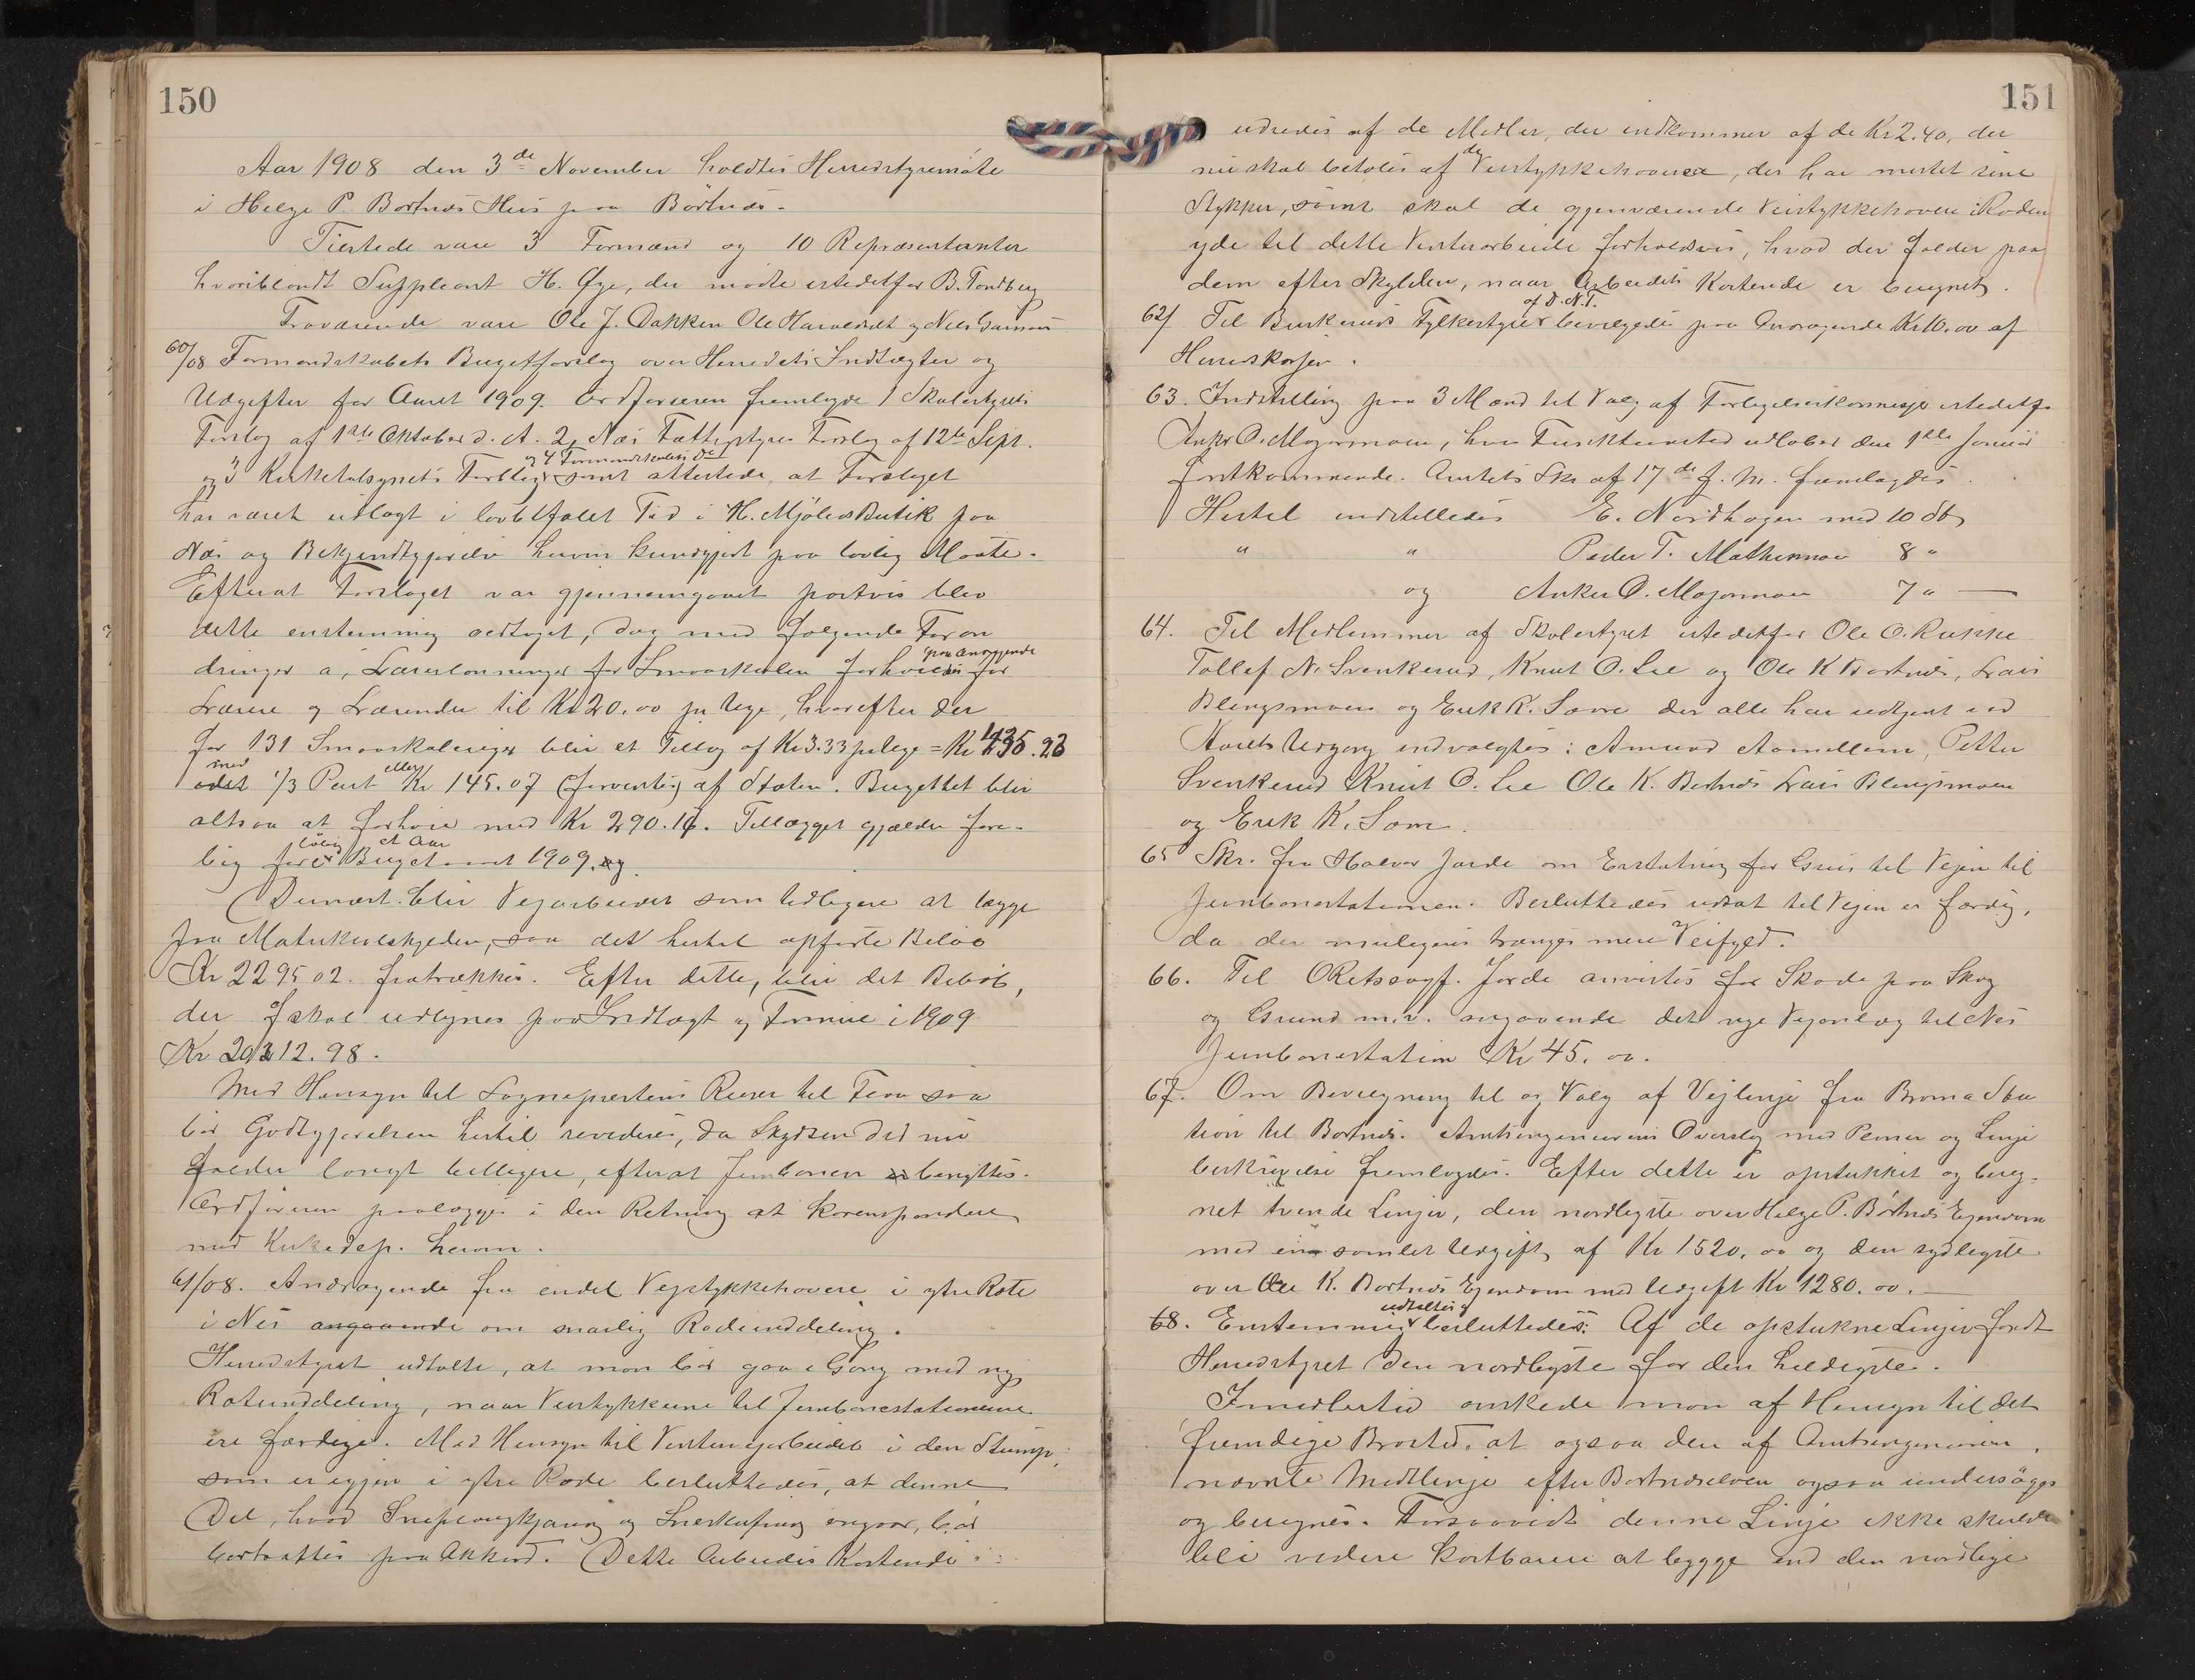 150
Aar 1908 den 3de November holdtes Herredstyremöte
i Helge P. Bortnes Hus paa Börtnes.
Tilstede vare 3 Formænd og 10 Repræsentanter
hvoriblandt Suppleant H. Øye, der mödte istedetfor B. Tondberg
Fraværende vare Ole J. Bakken Ole Haraldset og Nils
60/08 Formandskabets Bugetforslag over Herredets Indtægter og
Udgifter for Aaret 1909. Ordföreren fremlagde 1 Skolestyrets
Forslag af 1ste Oktober d. A. 2, Nes Fattigstyres Forslag af 12te Sept.
og 4 Formandskabets do
og 3 Kirketilsynets Forslag samt attesterede, at Forslaget
har været udlagt i lovbefalet Tid i H. Mjölids Butik paa
Nes og Bekjendtgjörelse herom kundgjort paa lovlig Maate.
Efterat Forslaget var gjennemgaaet postvis blev
dette enstemmig vedtaget, dog med følgende Foran
paa Andragende
dringer a, Lærerlønninger for Smaaskolen forhøies for
Lærere og Lærerinder til Kr 20.00 pr Uge, hvorefter der
for 131 Smaaskoleuger blir et Tillæg af Kr 3.33 pr Uge = Kr 435.23
med eller
1/3 Part Kr 145.07 (forventes) af Staten. Bugettet blir
altsaa at forhøie med Kr 290.16. Tillægget gjælder fore-
løbig et Aar
big for Bugetaaret 1909.
Dernæst blir Vejarbeidet som tidligere at lægge
paa Matrikulskylden, saa det hertil opførte Beløb
Kr 2295.02. fratrækkes. Efter dette, blir det Beløb,
der skal udlignes paa Indtægt og Formue i 1909
Kr 20212.98.
Med Hensyn til Sognepræstens Reiser til Flaa saa
bör Godtgjørelsen hertil revideres, da Skydsen did nu
falder langt billigere, efterat Jernbanen benyttes.
Ordføreren paalægges i den Retning at korrespondere
med Kirkedep. herom.
61/08. Andragende fra endel Vejstykkehavere i ytre Rote
i Nes angaaende om snarlig Rodeinddeling.
Herredstyret udtalte, at man bør gaa i Gang med ny
Roteinddeling, naar Veistykkerne til Jernbanestationerne
ere færdige. Med Hensyn til Vintervejarbeidet i den Stump,
som er igjen i ytre Rode besluttedes, at denne
Del, hvad Sneplougkjøring og Sneskuffning angaar, bör
bortsættes paa Akkord. Dette Arbeides Kostende
151
udredes af de Midler, der indkommer af de Kr 2.40, der
de
nu skal betales af Veistykkehavere, der har mistet sine
Stykker, samt skal de gjenværende Veistykkehavere i Roden
yde til dette Vinterarbeide forholdsvis, hvad der falder paa
dem efter Skylden, naar Arbeidets Kostende er beregnet.
af D.N.T.
62/ Til Buskeruds Fylkestyre bevilgedes paa Andragende Kr 10.00 af
Herredskassen.
63. Indstilling paa 3 Mænd til Valg af Forligelseskommissær istedetfor
Anker O. Mogormoen, hvis Funktionstid udløber den 1ste Januar
førstkommende. Amtets Skr af 17de f. M. fremlagdes.
Hertil indstilledes E. Nordhagen med 10 St
" " Peder T. Mathismoen 8 "
og Anker O. Mogormoen 7 "
64. Til Medlemmer af Skolestyret istedetfor Ole O. Rukke
Tollef N. Svenkerud, Knut O. Lie og Ole K Bortnes, Lars
Blengsmoen og Erik K. Some der alle har udtjent ved
Aarets Udgang indvalgtes: Amund Aamellem, Petter
Svenkerud Knut O. Lie Ole K. Bortnes Lars Blengsmoen
og Erik K. Some.
65 Skr. fra Halvor Jorde om Erstatning for Grus til Vejen til
Jernbanestationen. Besluttedes udsat til Vejen er færdig,
da der muligens trænges mere Veifyld.
66. Til ORetssagf. Jorde anvistes for Skade paa Skog
og Grund m.v. angaaende det nye Vejanlæg til Nes
Jernbanestation Kr 45.00.
67. Om Bevilgning til og Valg af Vejlinje fra Broma Sta
tion til Bortnes. Amtsingeniørens Overslag med Planer og Linje
beskrivelse fremlagdes. Efter dette er opstukket og bereg-
net tvende Linjer, den nordligste over Helge P. Börtnes Ejendom
med en samlet Udgift af Kr 1520.00 og den sydligste
over Ole K. Bortnes Ejendom med Udgift Kr 1280.00.
udtaltes og
68. Enstemmig besluttedes: Af de opstukne Linjer fandt
Herredstyret den nordligste for den heldigste.
Imidlertid ønskede man af Hensyn til det
fremtidige Brosted, at ogsaa den af Amtsingeniøren
nævnte Midtlinje efter Bortneselven ogsaa undersöges
og beregnes. Forsaavidt denne Linje ikke skulde
bli videre kostbarere at bygge end den nordlige